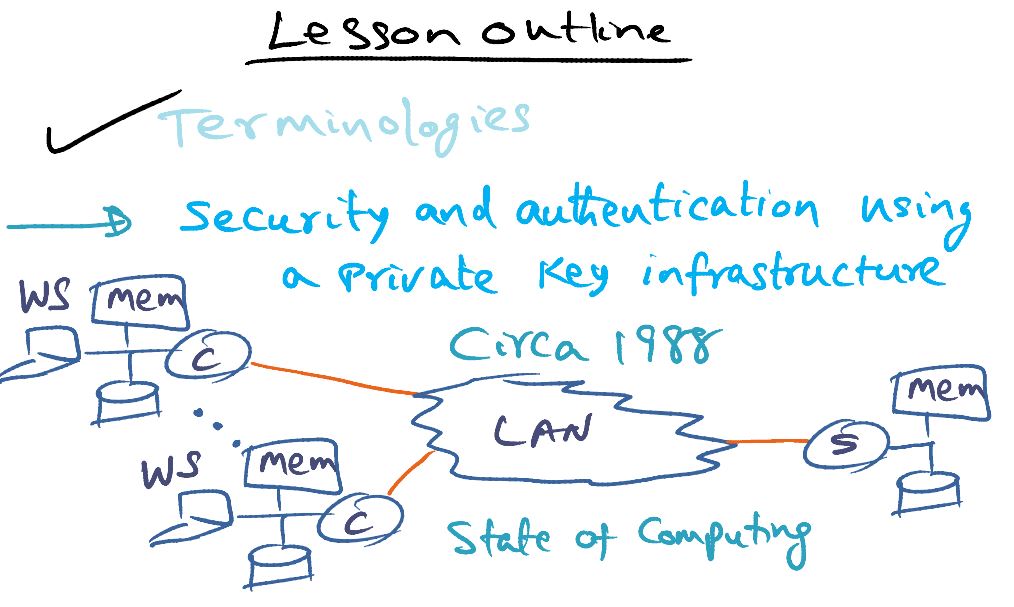 Lesson outline
Terminologies
Security and authentication using
a Private Key infrastructure
Circa 1988
WS
mem
C
LAN
mem
S
WS
mem
C
State of Computing